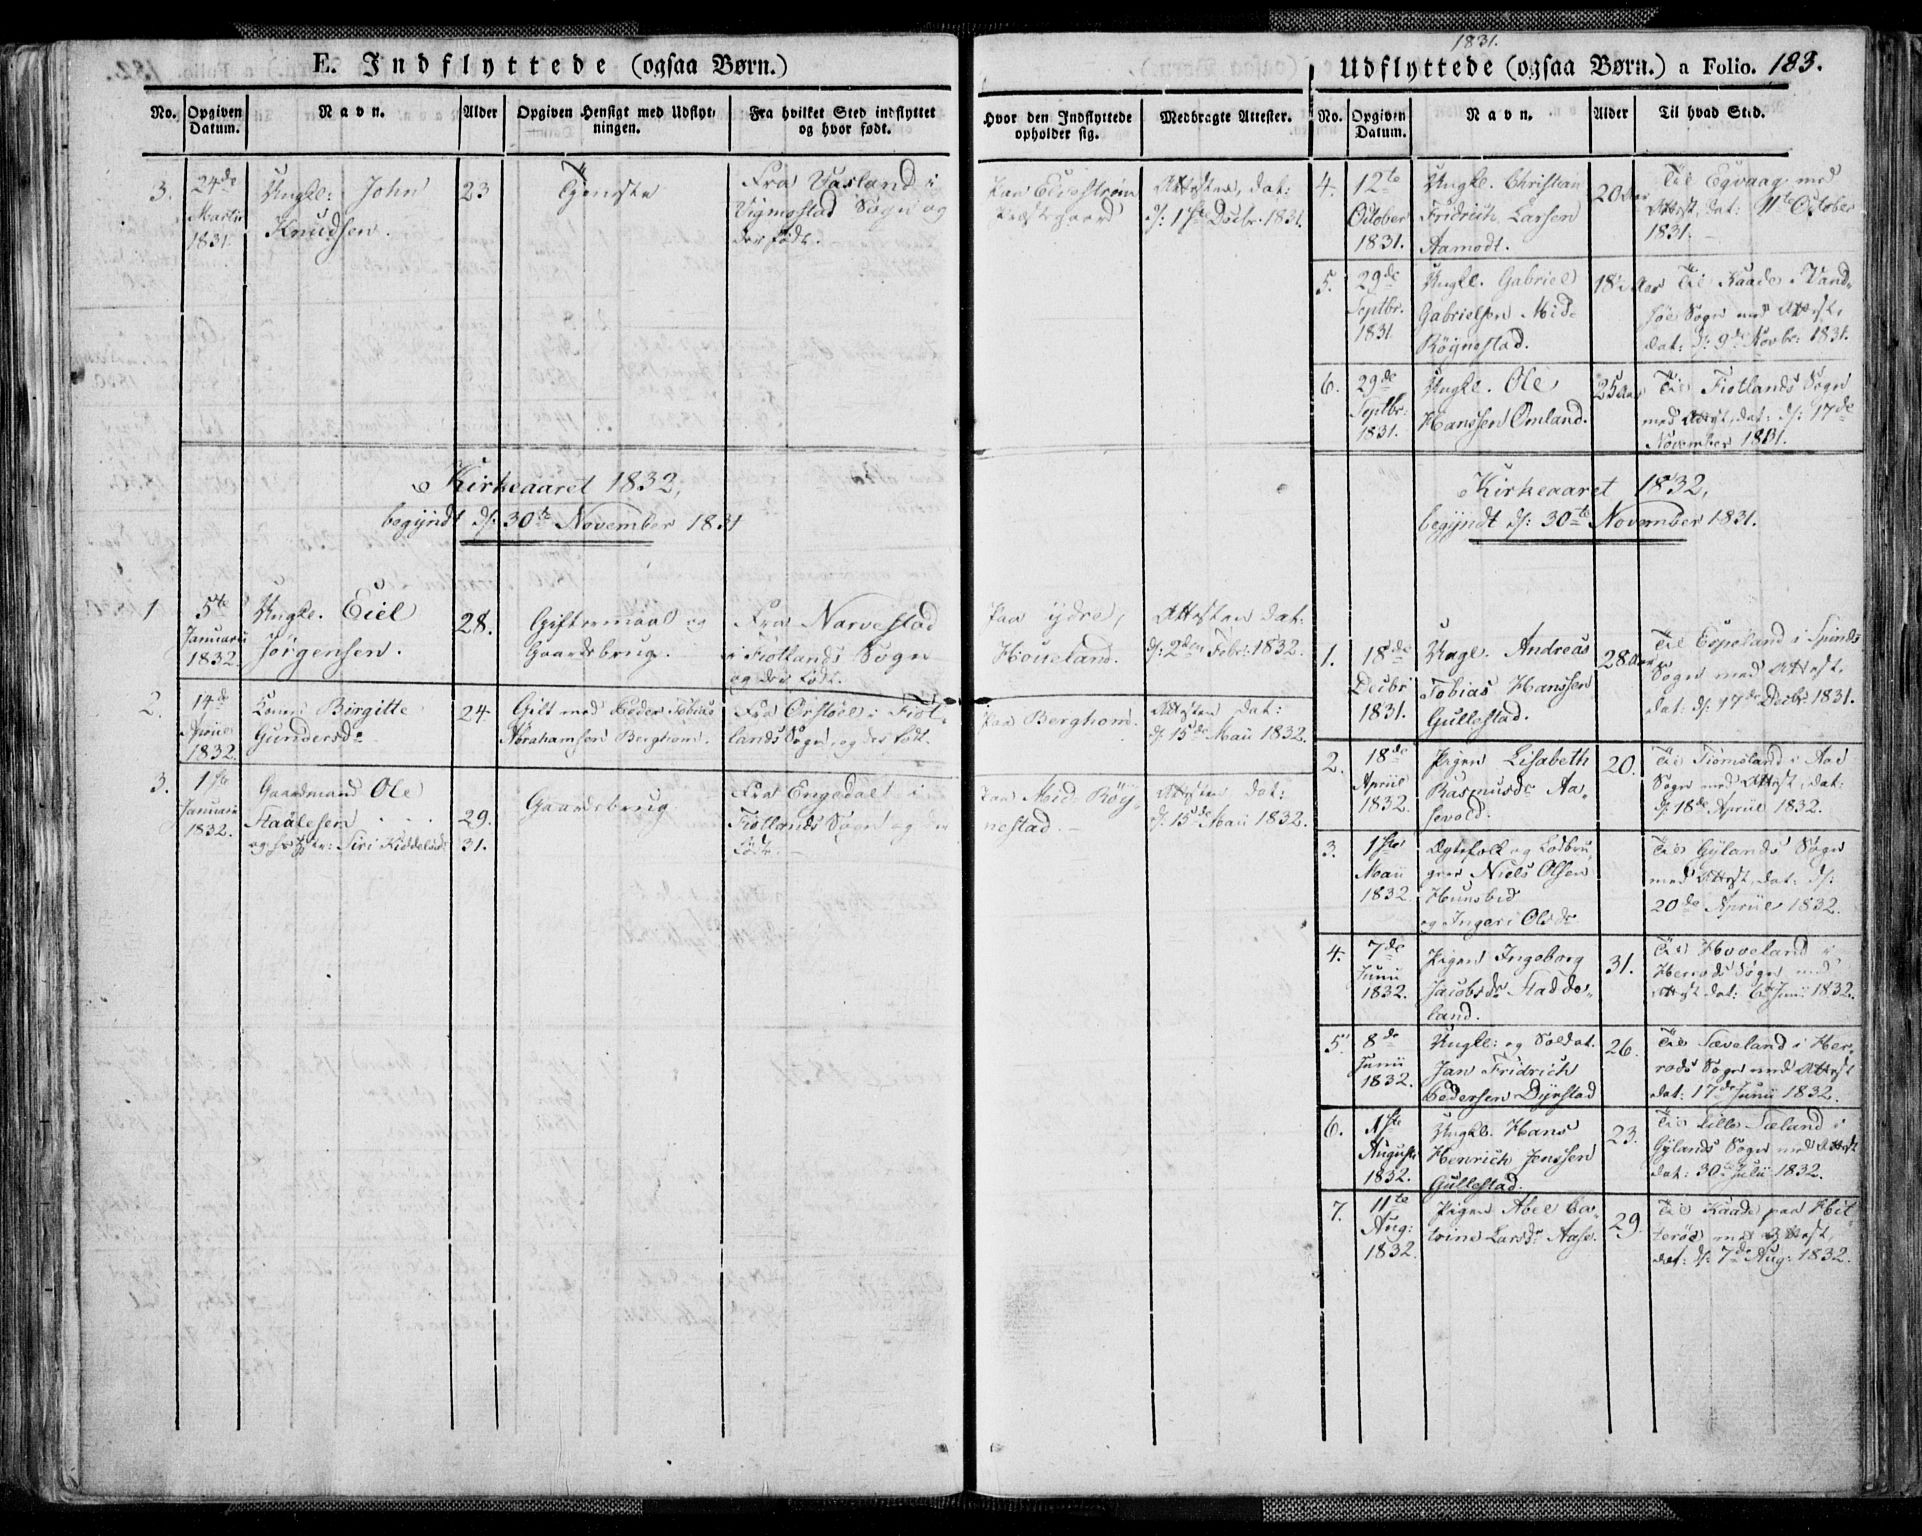 E. Indflyttede (ogsaa Børn.)
No.
Opgiven
Datum.
Navn.
Alder
Opgiven Hensigt med Udflyt-
ningen.
Fra hvilket Sted indflyttet
og hvor født.
3.
24de
Martii
1831.
Ungk: John
Knudsen.
23
Tjeneste
Fra Vasland i
Vigmostad Sogn og
der født.
Kirkeaaret 1832,
begyndt d: 30te November 1831
1
5te
Januarii
1832.
Ungk. Eiel
Jørgensen.
28.
Giftermaal og
Gaardsbrug.
Fra Narvestad
i Fiotlands Sogn
og der født.
2.
14de
Apriil
1832.
Kone: Birgitte
Gundersd.
24
Gift med Peder Tobias
Abrahamsen Berghom.
Fra Ørstøel i Fiot-
lands Sogn, og der født.
3.
1ste
Januarii
1832.
Gaardmand Ole
Staalesen
og Hustr: Siri Kiddelsd.
29.
31.
Gaardsbrug
Fra Engedal i
Fiotlands Sogn og der
født.
Hvor den Indflyttede
opholder sig.
Medbragte Attester.
Paa Elvestrøm
Præstegaard
Attesten, dat:
d: 1ste Decbr. 1831.
Paa ydre,
Houeland.
Attesten dat:
d: 2den Febr: 1832.
Paa Berghom.
Attesten dat:
d: 15de Maii 1832.
Paa Mid. Røy-
nestad.
Attesten dat:
d: 15de Maii 1832.
1831.
Udflyttede (ogsaa Børn.) a Folio. 183.
No.
Opgiven
Datum.
Navn.
Alder
Til hvad Sted.
4.
12te
October
1831.
Ungk. Christian
Fridrich Larsen
Aamodt.
20 Aar
Til Egvaag med
Attest, dat: 11te October
1831.
5.
29de
Septbr.
1831
Ungk. Gabriel
Gabrielsen Mid.
Røynestad.
18 Aar
Til Kaade i Vand-
søe Sogn med Attest,
dat: d: 9de Novbr: 1831.
6.
29de
Septbr:
1831.
Ungk. Ole
Hanssen Omland.
25 Aar
Til Fiotlands Sogn
med Attest, dat: d: 17de
November 1831.
Kirkeaaret 1832,
begyndt d: 30te November 1831.
1.
18de
Decbr
1831.
Ungk. Andreas
Tobias Hanssen
Gullestad.
28 Aar
Til Espeland i Spinds
Sogn med Attest,
dat: d: 17de Decbr 1831.
2.
18de
Apriil
1832.
Pigen Lisabeth
Rasmusd. Aa-
sevold.
20.
Til Tiomsland i Aad
Sogn med Attest, dat:
d: 18de Apriil 1832.
3.
1ste
Maii
1832.
Ægtefolk og Lodbru-
ger Niels Olsen
Hunsbed
og Ingeri Olsd.
Til Gylands Sogn
med Attest, dat: d:
20de Apriil 1832.
4.
7de
Junii
1832.
Pigen Ingeborg
Jacobsd. Stadde-
land.
31.
Til Hoveland i
Herrods Sogn med
Attest dat: 6te Junii 1832.
5.
8de
Junii
1832.
Ungk: og Soldat
Jan Fridrich
Pedersen Dyrstad
26.
Til Sæveland i Her-
rods Sogn med Attest
dat: 17de Junii 1832.
6.
1ste
Augusti
1832.
Ungk. Hans
Henrich Jenssen
Gullestad.
23.
Til Lille Sæland i
Gylands Sogn med Attest
dat: 30te Julii 1832.
7.
11te
Aug:
1832.
Pigen Abel Ca-
trine Larsd. Aase.
29.
Til Kaade paa Hit-
terøe med Attest,
dat: d: 7de Aug: 1832.